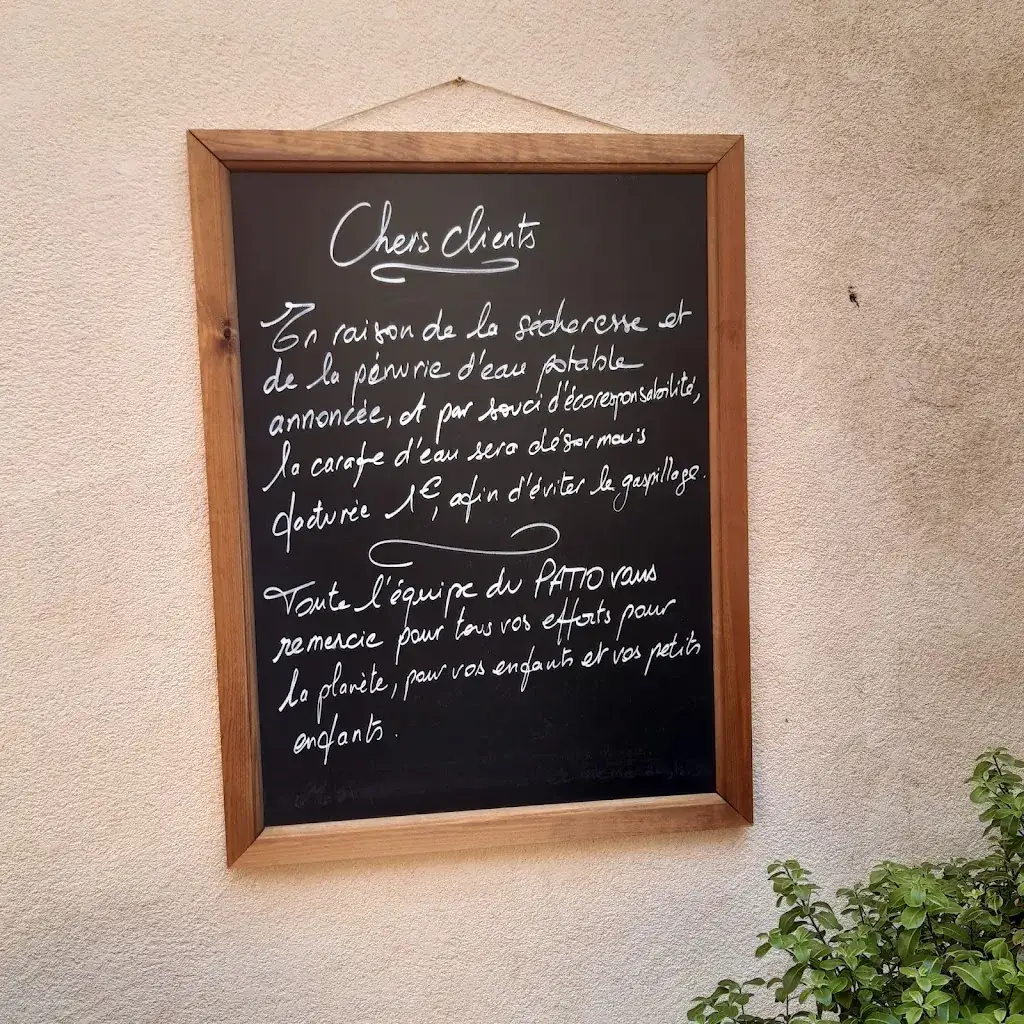 Chers clients
En raison de la sécheresse et
de la pénurie d'eau potable
annoncée, et par souci d'écoresponsabilité,
la carafe d'eau sera désormais
facturée 1€, afin d'éviter le gaspillage.
Toute l'équipe du PATIO vous
remercie pour tous vos efforts pour
la planète, pour vos enfants et vos petits
enfants.